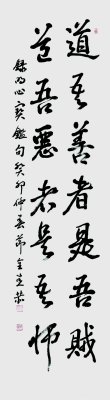 道吾善者是吾賊
道吾惡者是吾師
錄明心寶鑑句癸卯仲春節